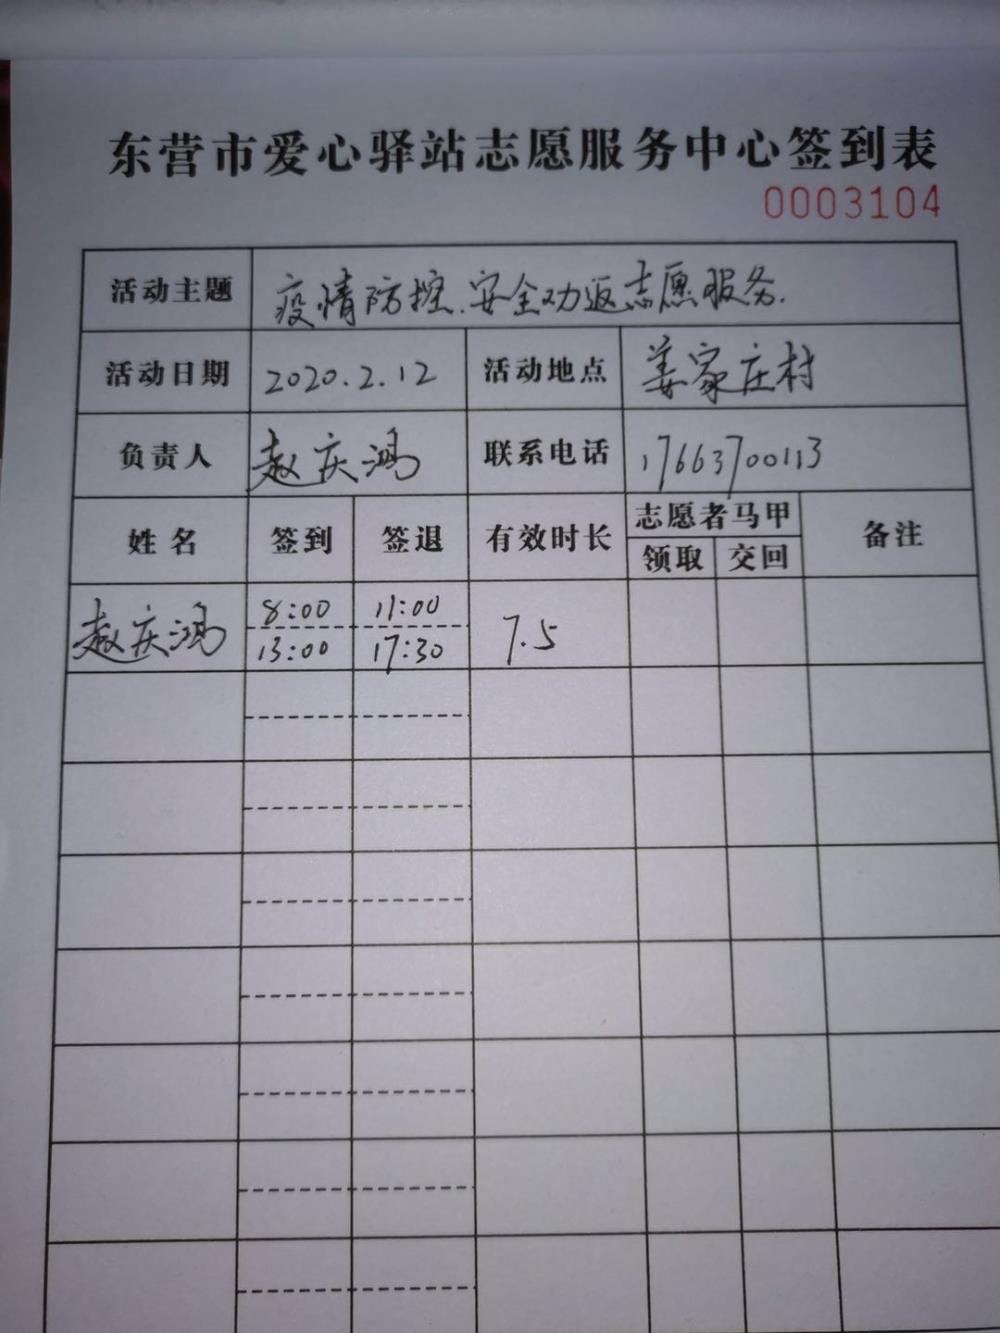 东营市爱心驿站志愿服务中心签到表
0003104
活动主题 疫情防控.安全劝返志愿服务.
活动日期 2020.2.12 活动地点 姜家庄村
负责人 赵庆鸿 联系电话 17663700113
姓名 签到 签退 有效时长 志愿者马甲 备注
领取 交回
赵庆鸿 8:00 11:00 7.5
13:00 17:30